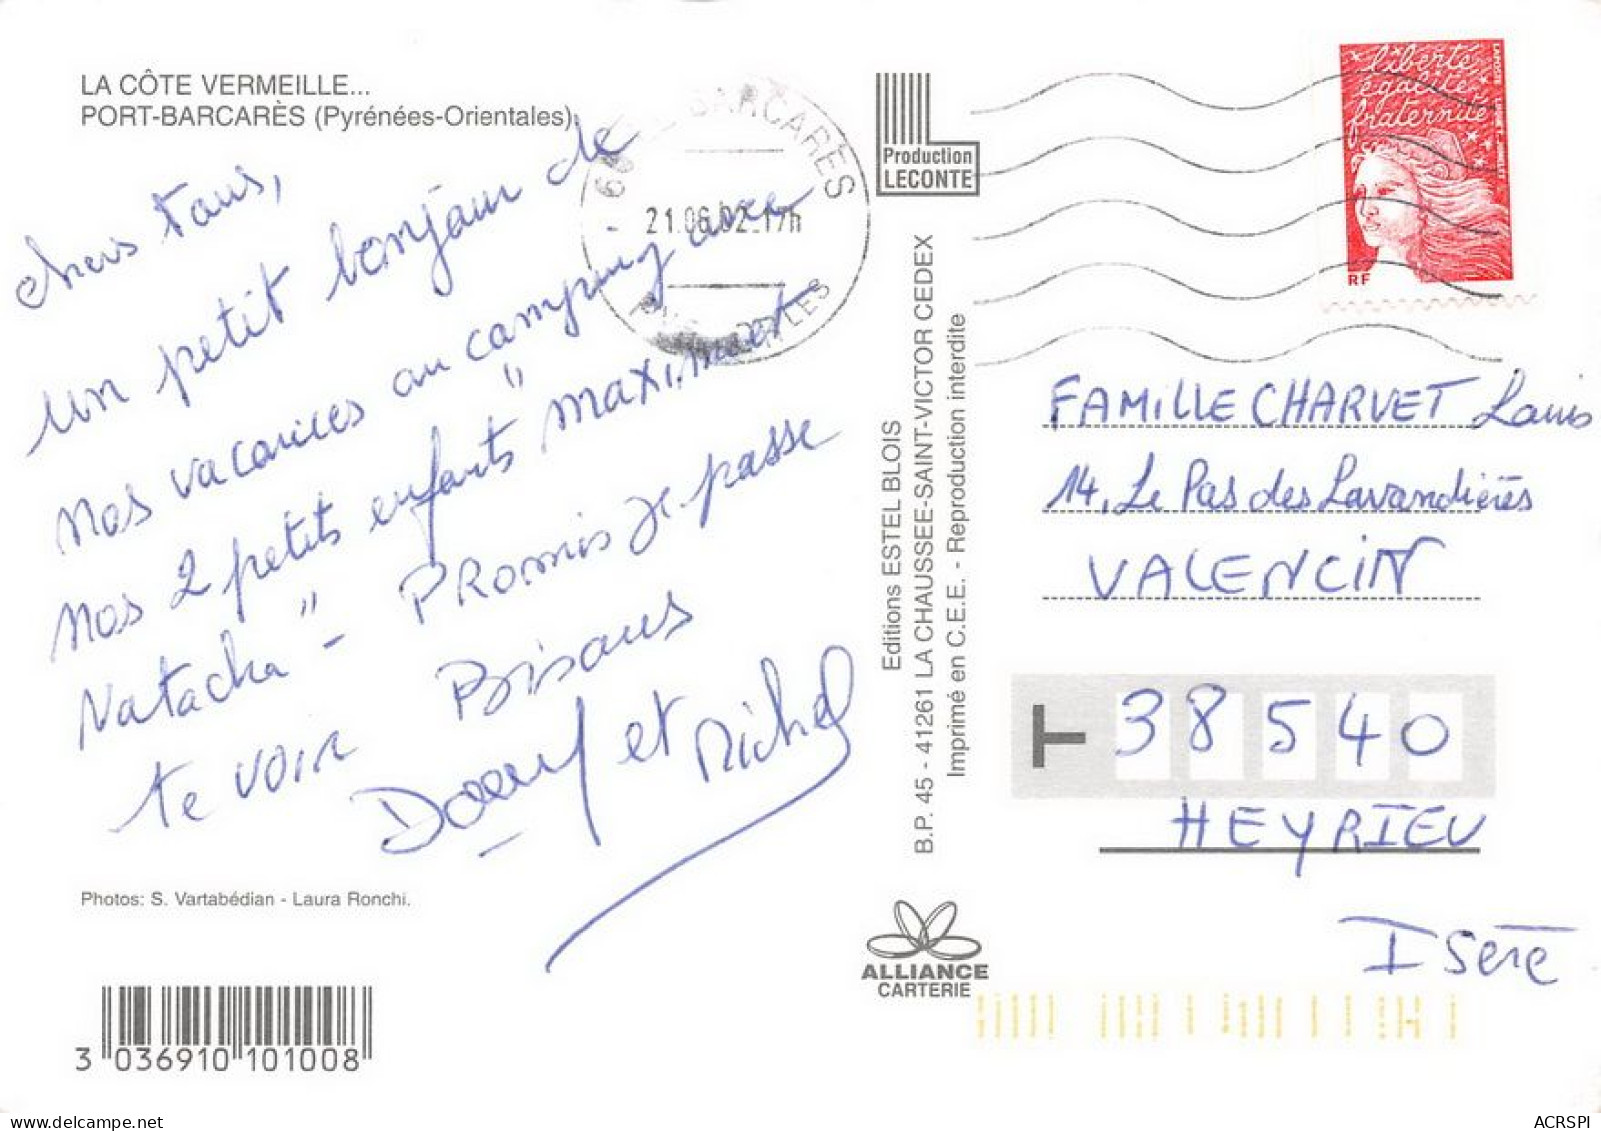 LA CÔTE VERMEILLE...
PORT-BARCARÈS (Pyrénées-Orientales)
chers tous,
un petit bonjour de
nos vacances au camping avec
nos 2 petits enfants "maxim et
Natacha" - PRomis je passe
te voir Bisous
et Michel
Photos: S. Vartabédian - Laura Ronchi.
3 036910 101008
BARCARÈS
21.06.02 17h
Production
LECONTE
Editions ESTEL BLOIS
B.P. 45 - 41261 LA CHAUSSEE-SAINT-VICTOR CEDEX
Imprimé en C.E.E. - Reproduction interdite
ALLIANCE
CARTERIE
liberté
égalité
fraternité
RF
LA POSTE
FAMILLE CHARVET Louis
14, Le Pas des Lavandières
VALENCIN
38540
HEYRIEU
Isère
ACRSPI